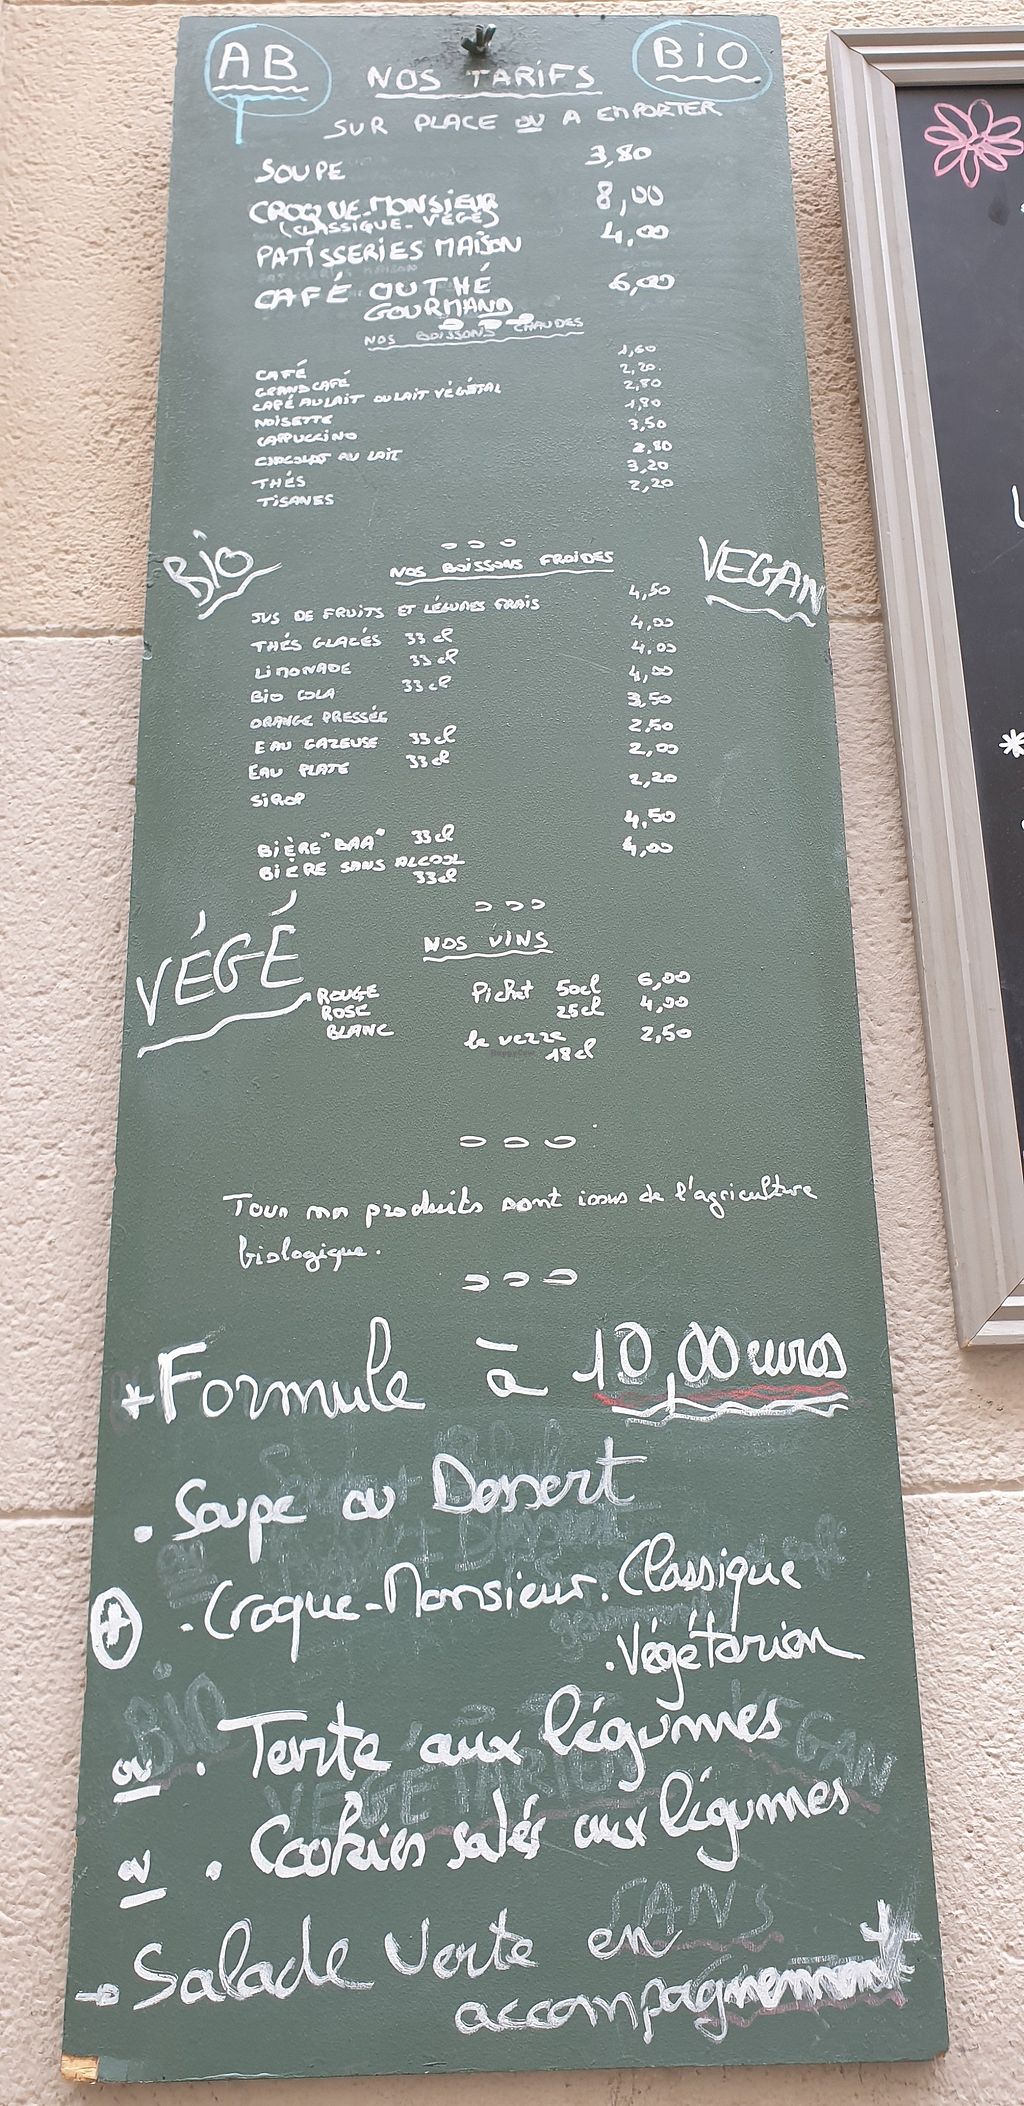 AB
BIO
NOS TARIFS
SUR PLACE OU A EMPORTER
SOUPE 3,80
CROQUE-MONSIEUR 8,00
(CLASSIQUE-VÉGÉ)
PATISSERIES MAISON 4,00
CAFÉ OU THÉ 6,00
GOURMAND
NOS BOISSONS CHAUDES
CAFÉ 1,60
GRAND CAFÉ 2,20
CAFÉ AU LAIT OU LAIT VÉGÉTAL 2,80
NOISETTE 1,80
CAPPUCCINO 3,50
CHOCOLAT AU LAIT 2,80
THÉS 3,20
TISANES 2,20
BIO
VEGAN
NOS BOISSONS FROIDES
JUS DE FRUITS ET LÉGUMES FRAIS 4,50
THÉS GLACÉS 33 cl 4,00
LIMONADE 33 cl 4,00
BIO COLA 33 cl 4,00
ORANGE PRESSÉE 3,50
EAU GAZEUSE 33 cl 2,50
EAU PLATE 33 cl 2,00
SIROP 2,20
BIÈRE "BAA" 33 cl 4,50
BIÈRE SANS ALCOOL 4,00
33 cl
VÉGÉ
NOS VINS
ROUGE Pichet 50cl 6,00
ROSE 25cl 4,00
BLANC le verre 2,50
18 cl
Tous nos produits sont issus de l'agriculture
biologique.
*Formule à 10,00 euros
. Soupe ou Dessert
+ . Croque-Monsieur . Classique
. Végétarien
ou . Terte aux légumes
ou . Cookies salés aux légumes
→ Salade Verte en
accompagnement*